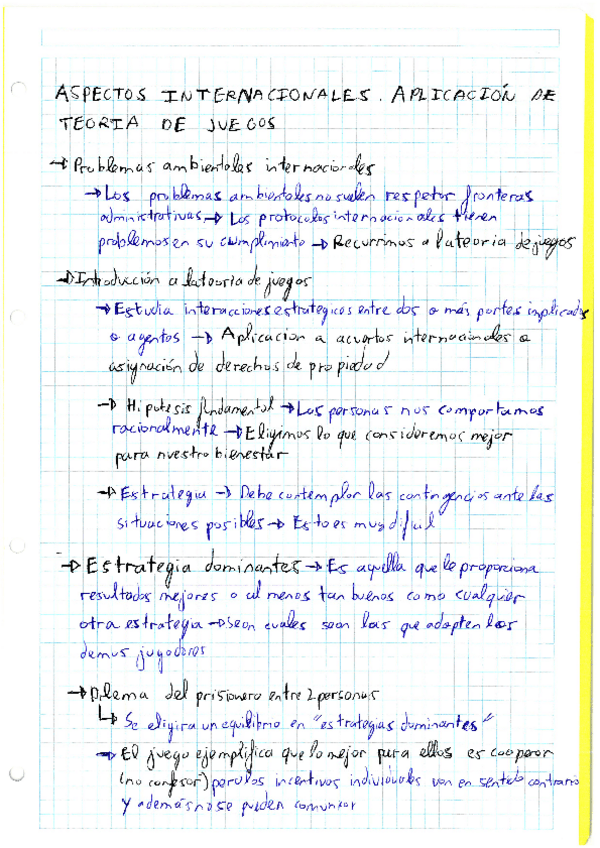 ASPECTOS INTERNACIONALES. APLICACIÓN DE
TEORIA DE JUEGOS
→ Problemas ambientales internacionales
→ Los problemas ambientales no suelen respetar fronteras
administrativas → Los protocolos internacionales tienen
problemas en su cumplimiento → Recurrimos a la teoria de juegos
→ Introducción a la teoria de juegos
→ Estudia interacciones estrategicas entre dos o más partes implicadas
o agentes → Aplicacion a acuertos internacionales o
asignación de derechos de propiedad
→ Hipotesis fundamental → Las personas nos comportamos
racionalmente → Eligimos lo que consideremos mejor
para nuestro bienestar
→ Estrategia → Debe contemplar las contingencias ante las
situaciones posibles → Esto es muy dificil
→ Estrategia dominantes → Es aquella que le proporciona
resultados mejores o al menos tan buenos como cualquier
otra estrategia → Sean cuales sean las que adopten los
demas jugadores
→ Dilema del prisionero entre 2 personas
↳ Se eligira un equilibrio en "estrategias dominantes"
→ El juego ejemplifica que lo mejor para ellos es cooperar
(no confesar) pero los incentivos individuales van en sentido contrario
y además no se pueden comunicar